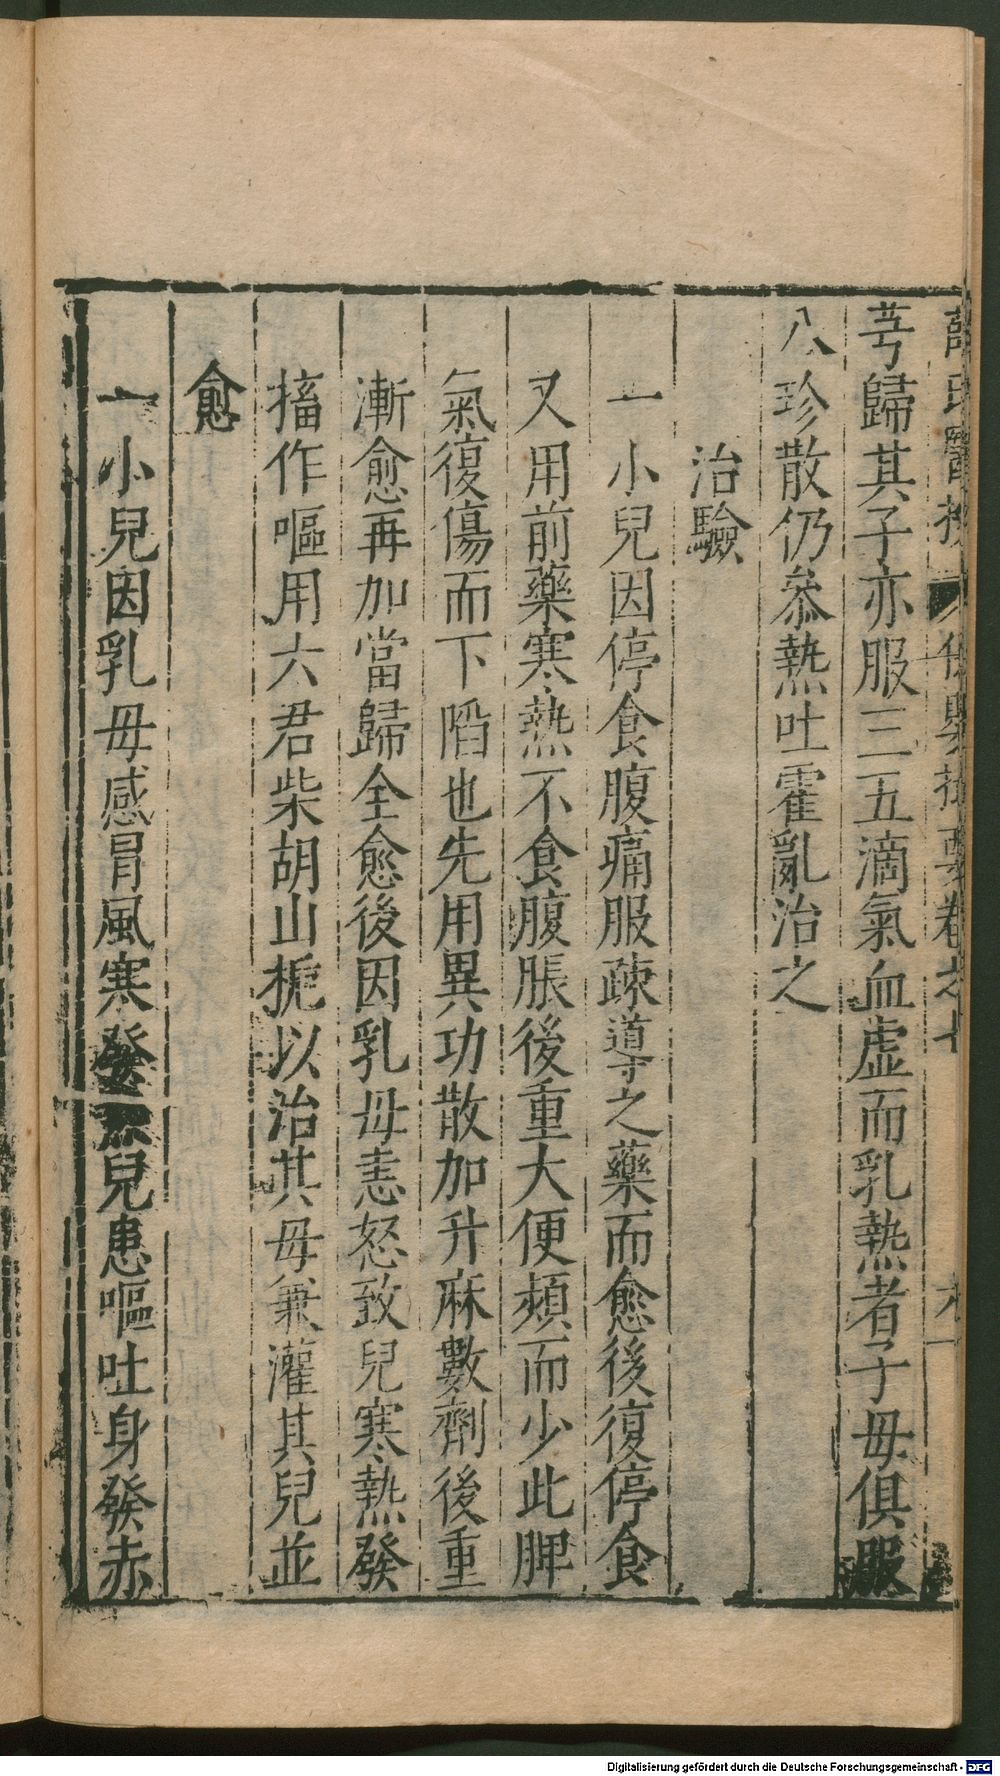 薛氏醫按 保嬰撮要卷之七
芎歸其子亦服三五滴氣血虚而乳熱者子母俱服
八珍散仍參熱吐霍亂治之
治驗
一小兒因停食腹痛服疎導之藥而愈後復停食
又用前藥寒熱不食腹脹後重大便頻而少此脾
氣復傷而下陷也先用異功散加升麻數劑後重
漸愈再加當歸全愈後因乳母恚怒致兒寒熱發
搐作嘔用六君柴胡山梔以治其母兼灌其兒並
愈
一小兒因乳母感冒風寒發熱兒患嘔吐身發赤
Digitalisierung gefördert durch die Deutsche Forschungsgemeinschaft - DFG